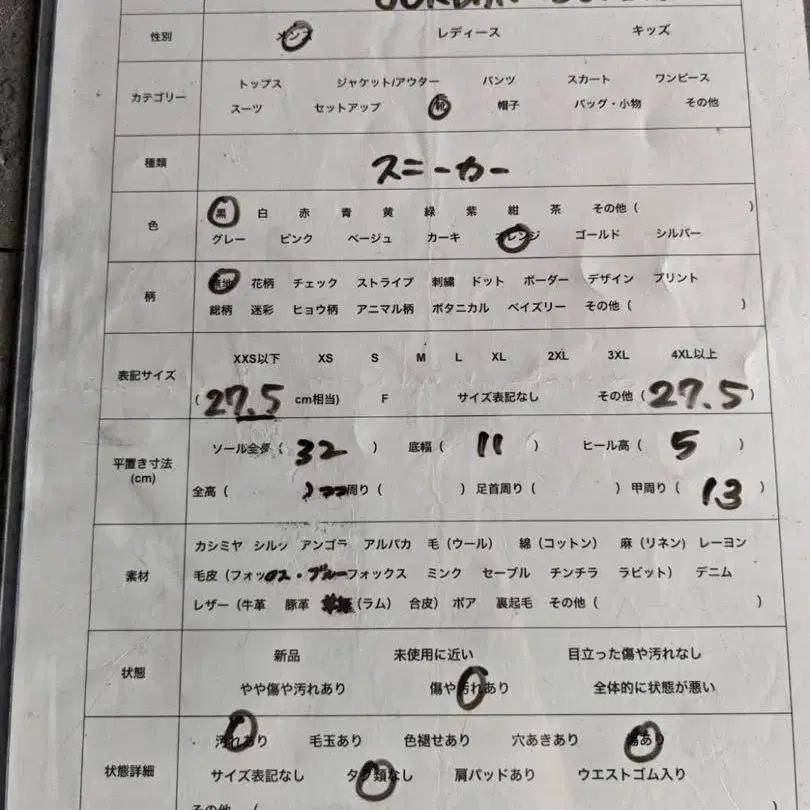 性別 メンズ レディース キッズ
カテゴリー
トップス ジャケット/アウター パンツ スカート ワンピース
スーツ セットアップ 靴 帽子 バッグ・小物 その他
種類 スニーカー
色
黒 白 赤 青 黄 緑 紫 紺 茶 その他 ( )
グレー ピンク ベージュ カーキ オレンジ ゴールド シルバー
柄
無地 花柄 チェック ストライプ 刺繍 ドット ボーダー デザイン プリント
総柄 迷彩 ヒョウ柄 アニマル柄 ボタニカル ペイズリー その他 ( )
表記サイズ
XXS以下 XS S M L XL 2XL 3XL 4XL以上
( 27.5 cm相当) F サイズ表記なし その他 ( 27.5 )
平置き寸法
(cm)
ソール全長 ( 32 ) 底幅 ( 11 ) ヒール高 ( 5 )
全高 ( ) 周り ( ) 足首周り ( ) 甲周り ( 13 )
素材
カシミヤ シルク アンゴラ アルパカ 毛 (ウール) 綿 (コットン) 麻 (リネン) レーヨン
毛皮 (フォックス・ブルーフォックス ミンク セーブル チンチラ ラビット) デニム
レザー (牛革 豚革 (ラム) 合皮) ボア 裏起毛 その他 ( )
状態
新品 未使用に近い 目立った傷や汚れなし
やや傷や汚れあり 傷や汚れあり 全体的に状態が悪い
状態詳細
汚れあり 毛玉あり 色褪せあり 穴あきあり 傷あり
サイズ表記なし タグ類なし 肩パッドあり ウエストゴム入り
その他 (